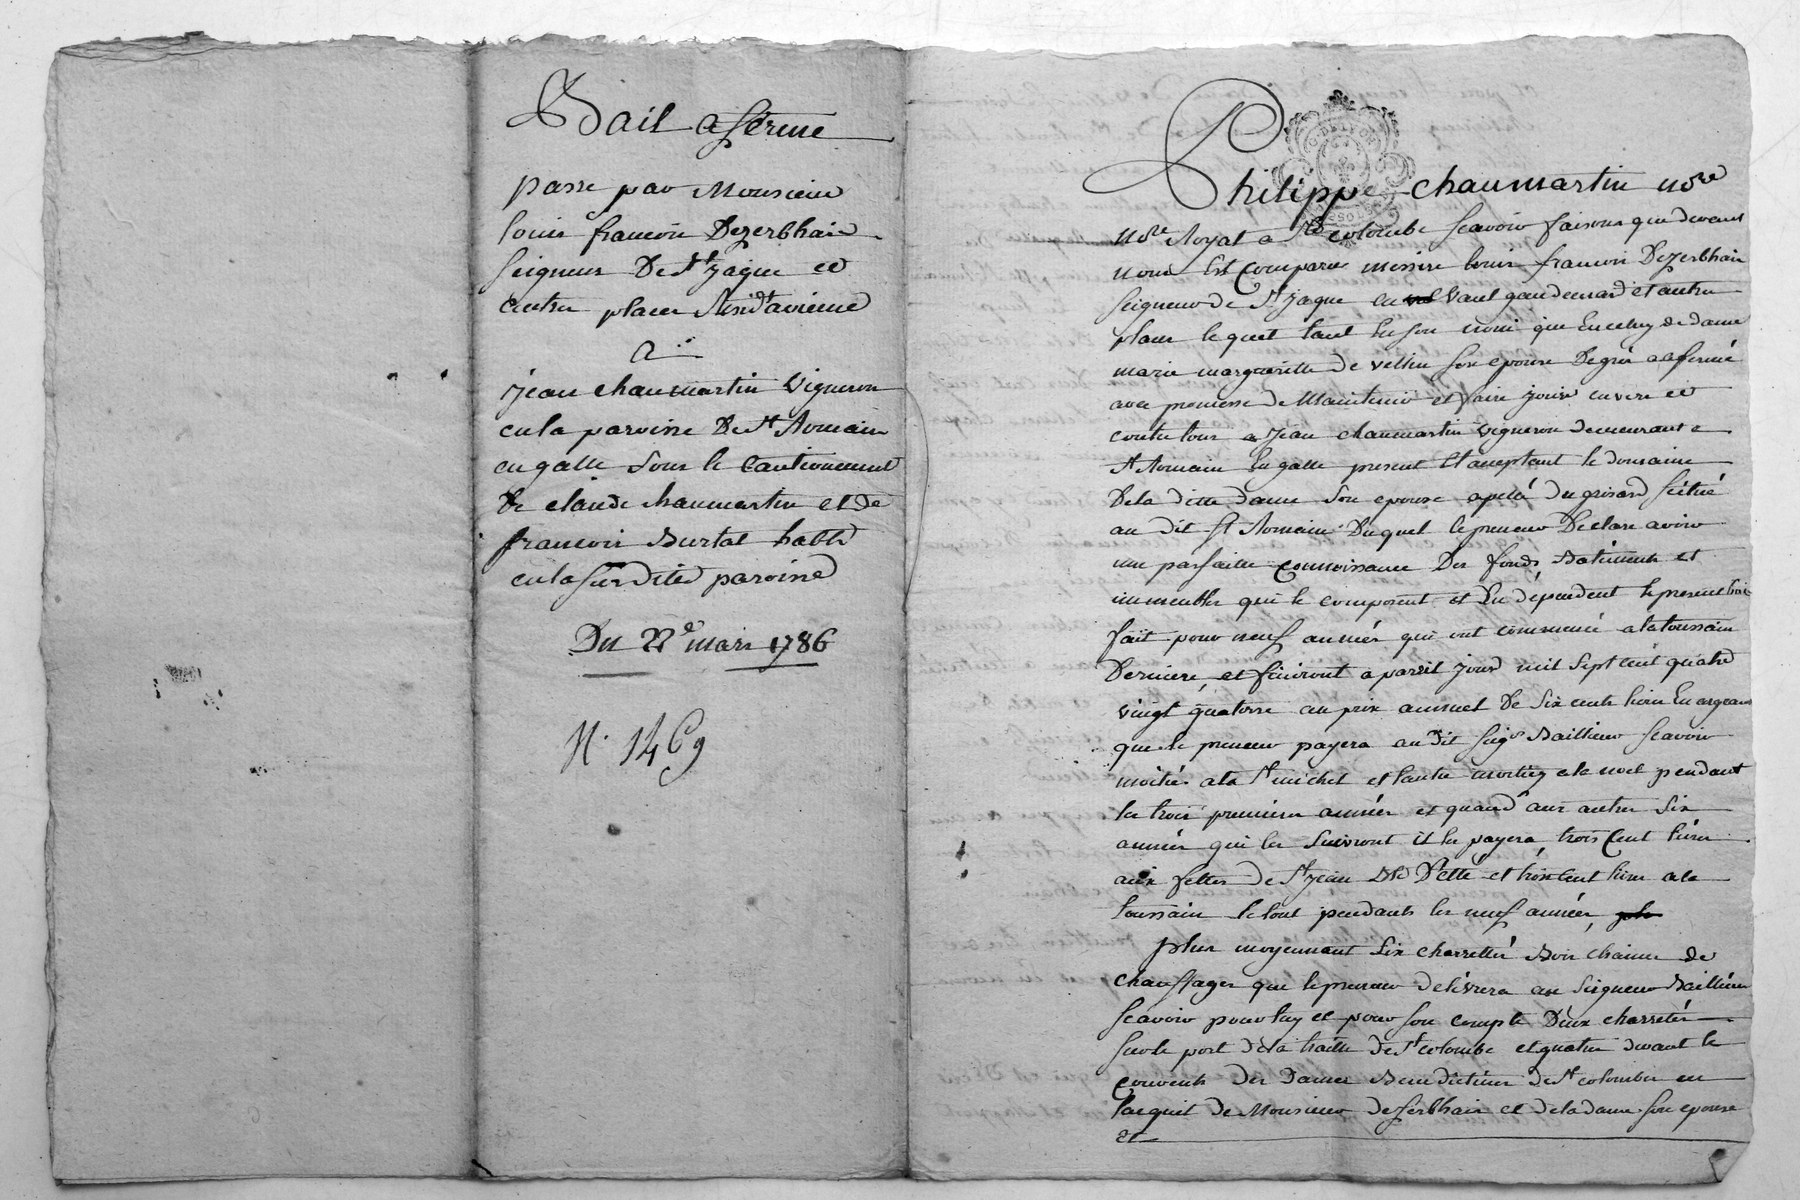 Bail a ferme
passe par Monsieur
louis francois Dezerbhais
Seigneur De St Jaque et
autres places Résidt a vienne
A
jean chaumartin Vigneron
en la paroisse De St Romain
en galle sous le Cautionement
De claude chaumartin et de
francois Burtat habts
en la susdite paroisse
Du 22e mars 1786
N. 1469
Philippe chaumartin nore
nore Royal a Ste colombe scavoir faisons que devant
nous Est comparu messire louis francois Dezerbhais
seigneur de St Jaque en vaul gaudemard et autres
places lequel tant en son nom que En celuy de dame
marie margueritte de vellin son epouse De gré a afermé
avec promesse de Maintenir et faire jouir envers et
contre tous a Jean chaumartin vigneron demeurant a
St Romain En galle present et acceptant le domaine
De la ditte dame son epouse apellé du grisard scitué
au dit St Romain Duquel le preneur Declare avoir
une parfaitte connoissance Des fonds Batiments et
immeubles qui le composent et En dépendent le present bail
fait pour neuf années qui ont commencé a la toussain
Derniere, et finiront a pareil jour mil sept cent quatre
vingt quatorze au prix annuel De six cents livres En argent
que le preneur payera au dit seigr Bailleur scavoir
moitié a la St michel et l'autre moitiez a la noel pendant
les trois premieres années et quand aux autres six
années qui les suivront il les payera, trois Cent livres
aux fettes de St jean Bte D'Eté et trois Cent livres a la
toussain le tout pendants les neuf années,
plus moyennant six charrettés Bois chaine de
chauffages que le preneur delivrera au seigneur Bailleur
scavoir pour luy et pour son compte Deux charretés
sur le port de la halle de St colombe et quatre devant le
couvents des Dames Benedictines de St colombe en
l'acquit de Monsieur dezerbhais et de la dame son epouse
et